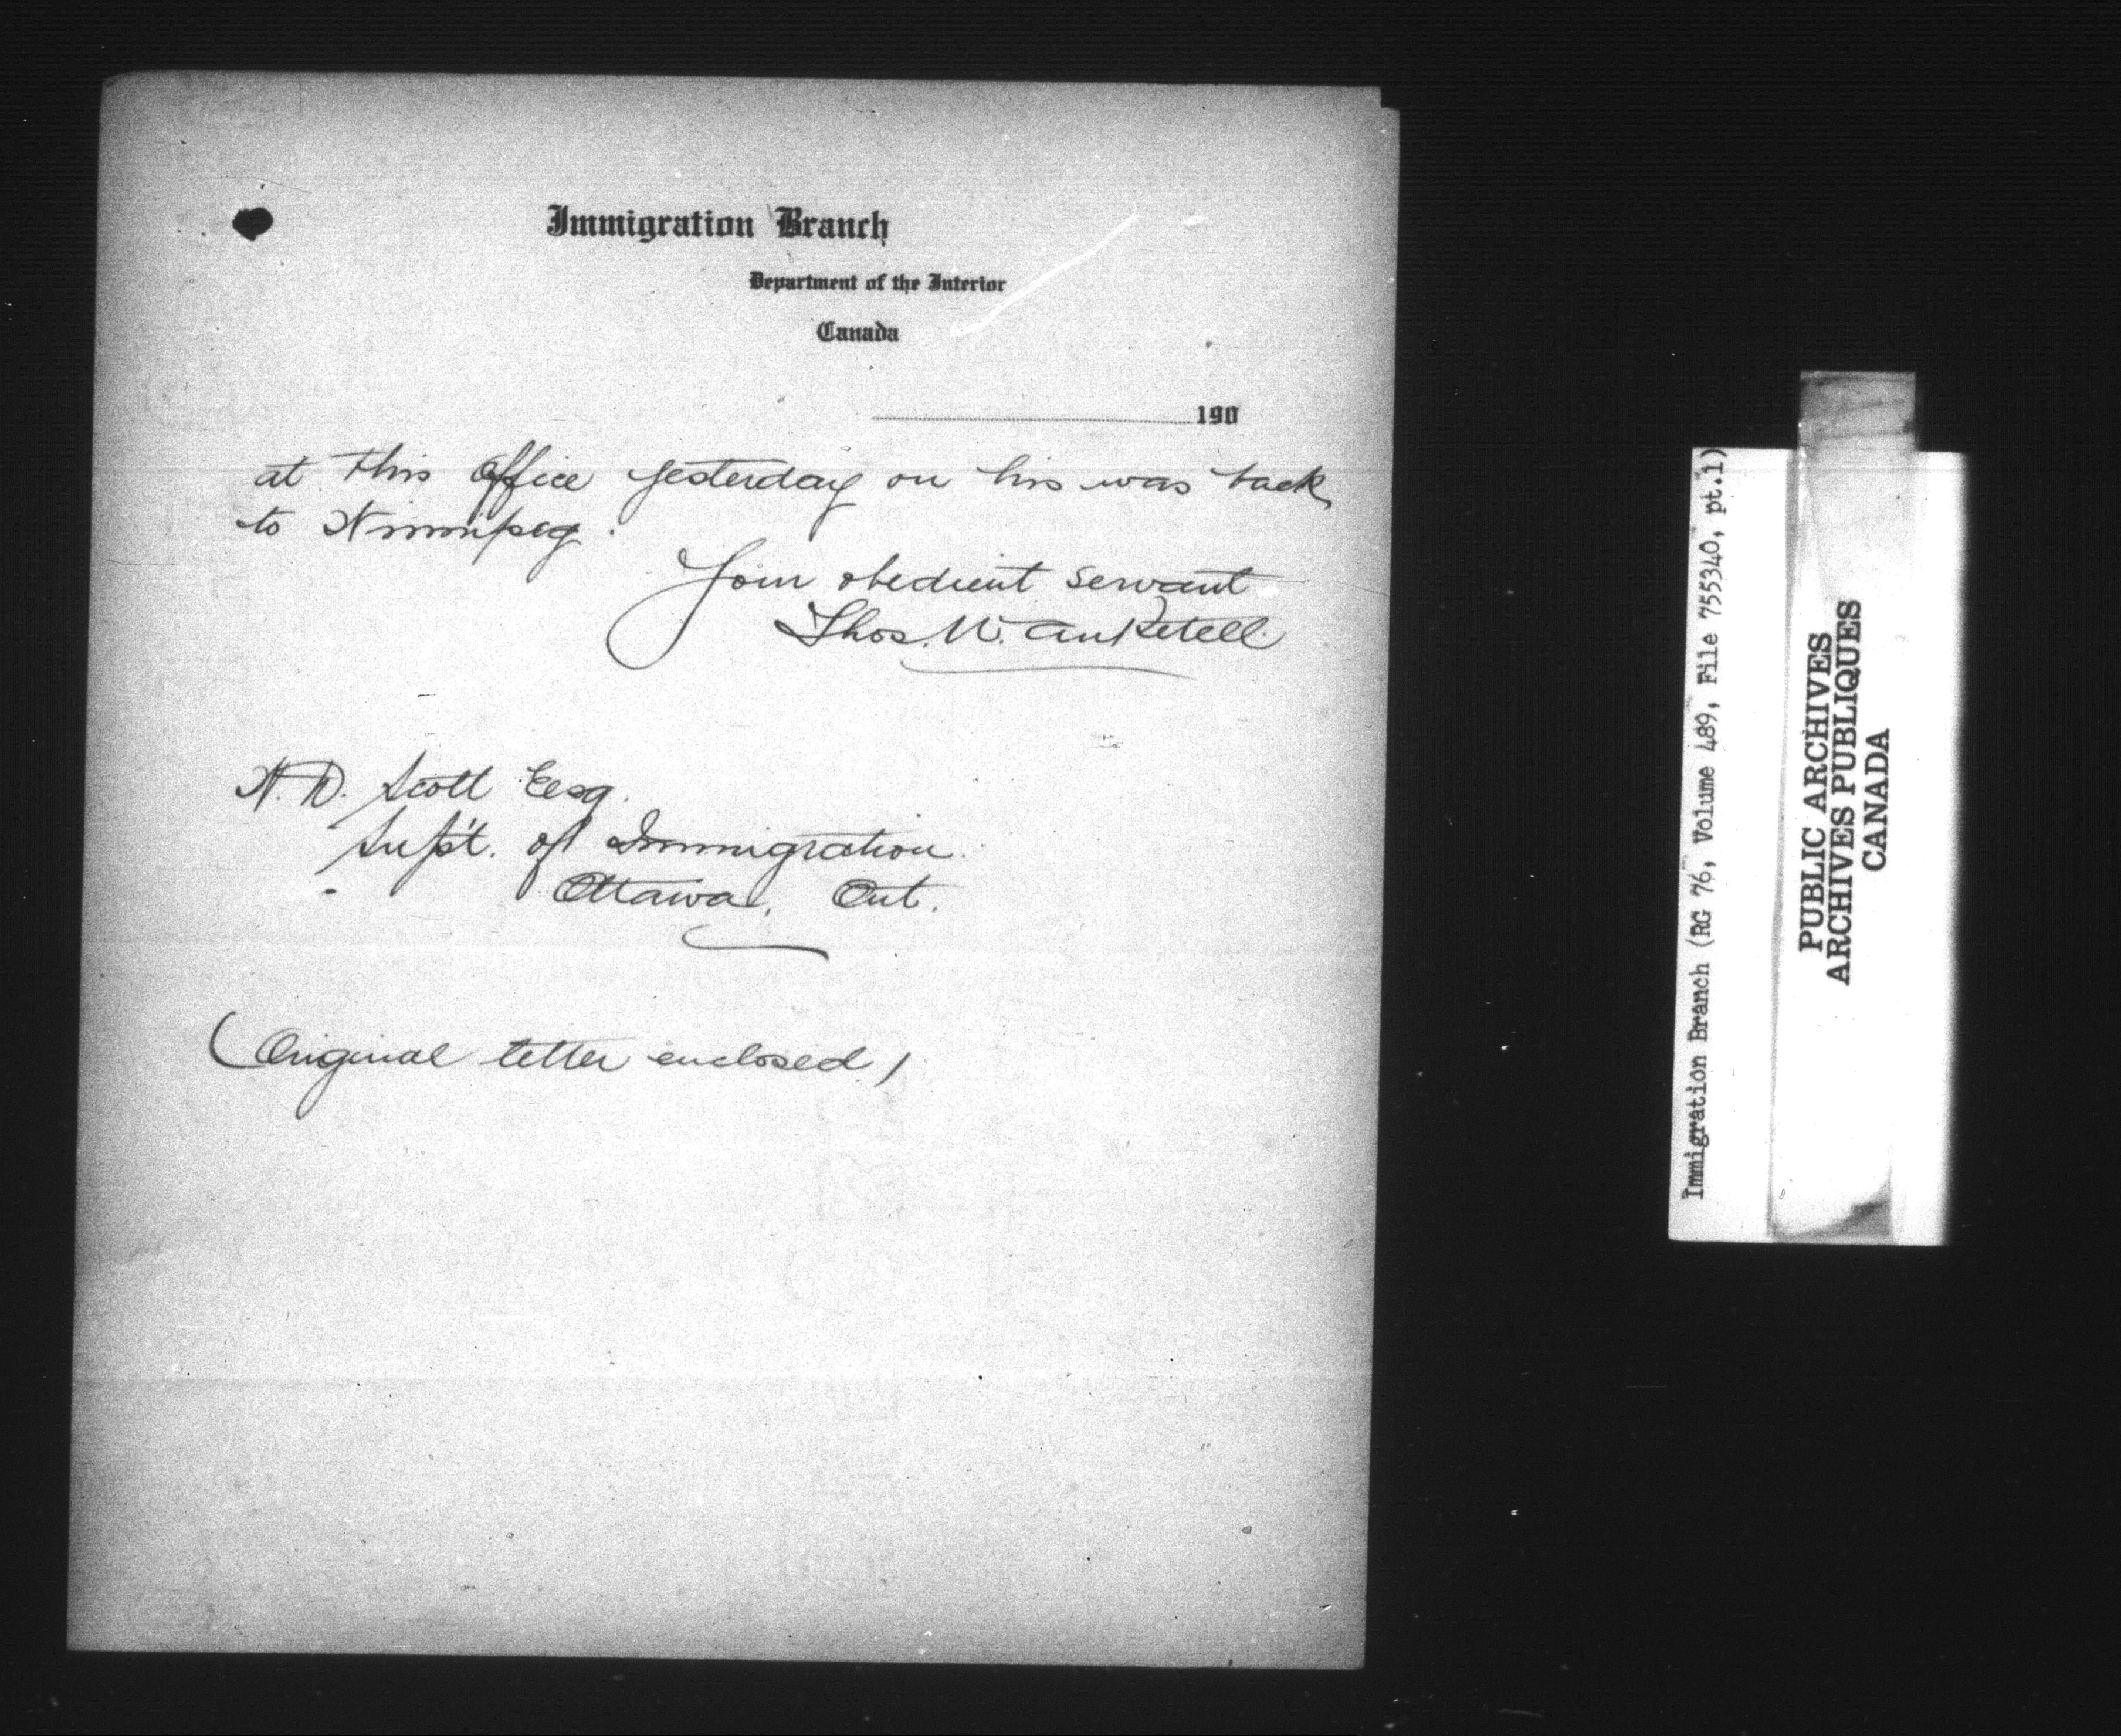 Immigration Branch
Department of the Interior
Canada
190
at this office yesterday on his was back
to Winnipeg.
Your obedient servant
Thos. W. Anketell.
W. D. Scott Esq.
Supt. of Immigration.
Ottawa, Ont.
(Original letter enclosed)
Immigration Branch (RG 76, Volume 489, File 755340, pt.1)
PUBLIC ARCHIVES
ARCHIVES PUBLIQUES
CANADA